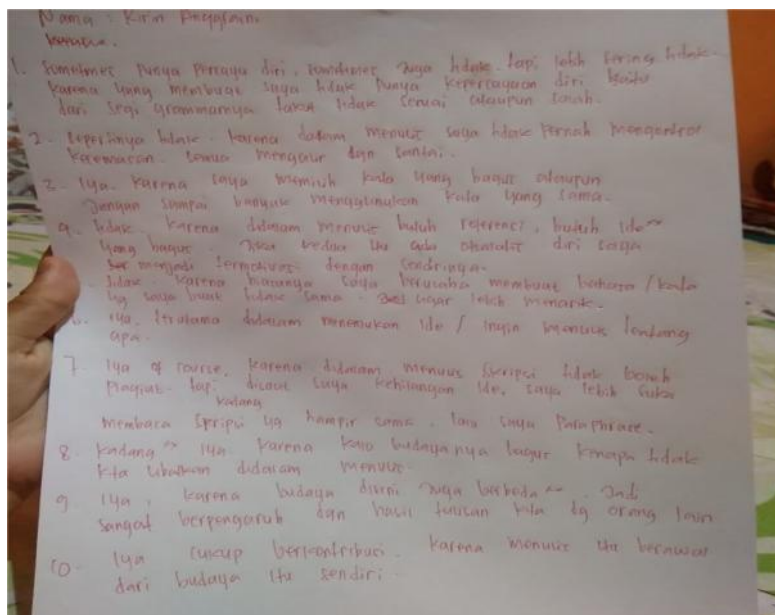 Nama : Kirin
1. Sometimes punya percaya diri, sometimes juga tidak. tapi lebih sering tidak.
karena yang membuat saya tidak punya kepercayaan diri yaitu
dari segi grammarnya takut tidak sesuai ataupun salah.
2. Sepertinya tidak. karena dalam menulis saya tidak pernah mengontrol
kecemasan. semua mengalir dgn santai.
3. Iya. karena saya memilih kata yang bagus ataupun
jangan sampai banyak menggunakan kata yang sama.
4. tidak. karena didalam menulis butuh referensi, butuh ide~
yang bagus. Jika kedua itu ada otomatis diri saya
menjadi termotivasi dengan sendirinya.
tidak. karena biasanya saya berusaha membuat bahasa / kata
yg saya buat tidak sama. agar lebih menarik.
6. iya, terutama didalam menemukan ide / ingin menulis tentang
apa.
7. Iya of course. karena didalam menulis skripsi tidak boleh
plagiat. tapi disaat saya kehilangan ide, saya lebih suka
kadang
membaca skripsi yg hampir sama, lalu saya paraphrase.
8. kadang~ iya. karena kalo budayanya bagus kenapa tidak
kita libatkan didalam menulis.
9 Iya, karena budaya disini juga berbeda~. Jadi
sangat berpengaruh dgn hasil tulisan kita dg orang lain
10. Iya cukup berkontribusi. karena menulis itu berawal
dari budaya itu sendiri.